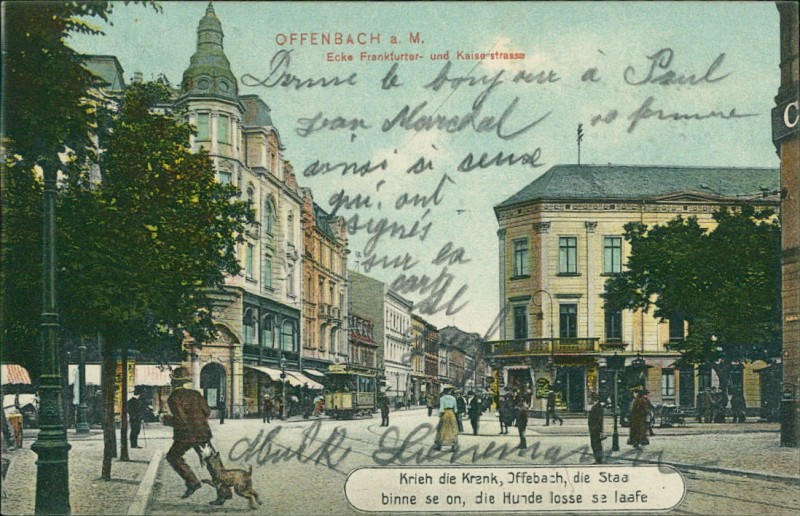 OFFENBACH a. M.
Ecke Frankfurter- und Kaiserstrasse
Donne le bonjour à Paul
Jean Marchal
ainsi si ceuse
qui ont
signés
sur la
carte
C
Krieh die Krenk, Offebach, die Staa
binne se on, die Hunde losse se laafe